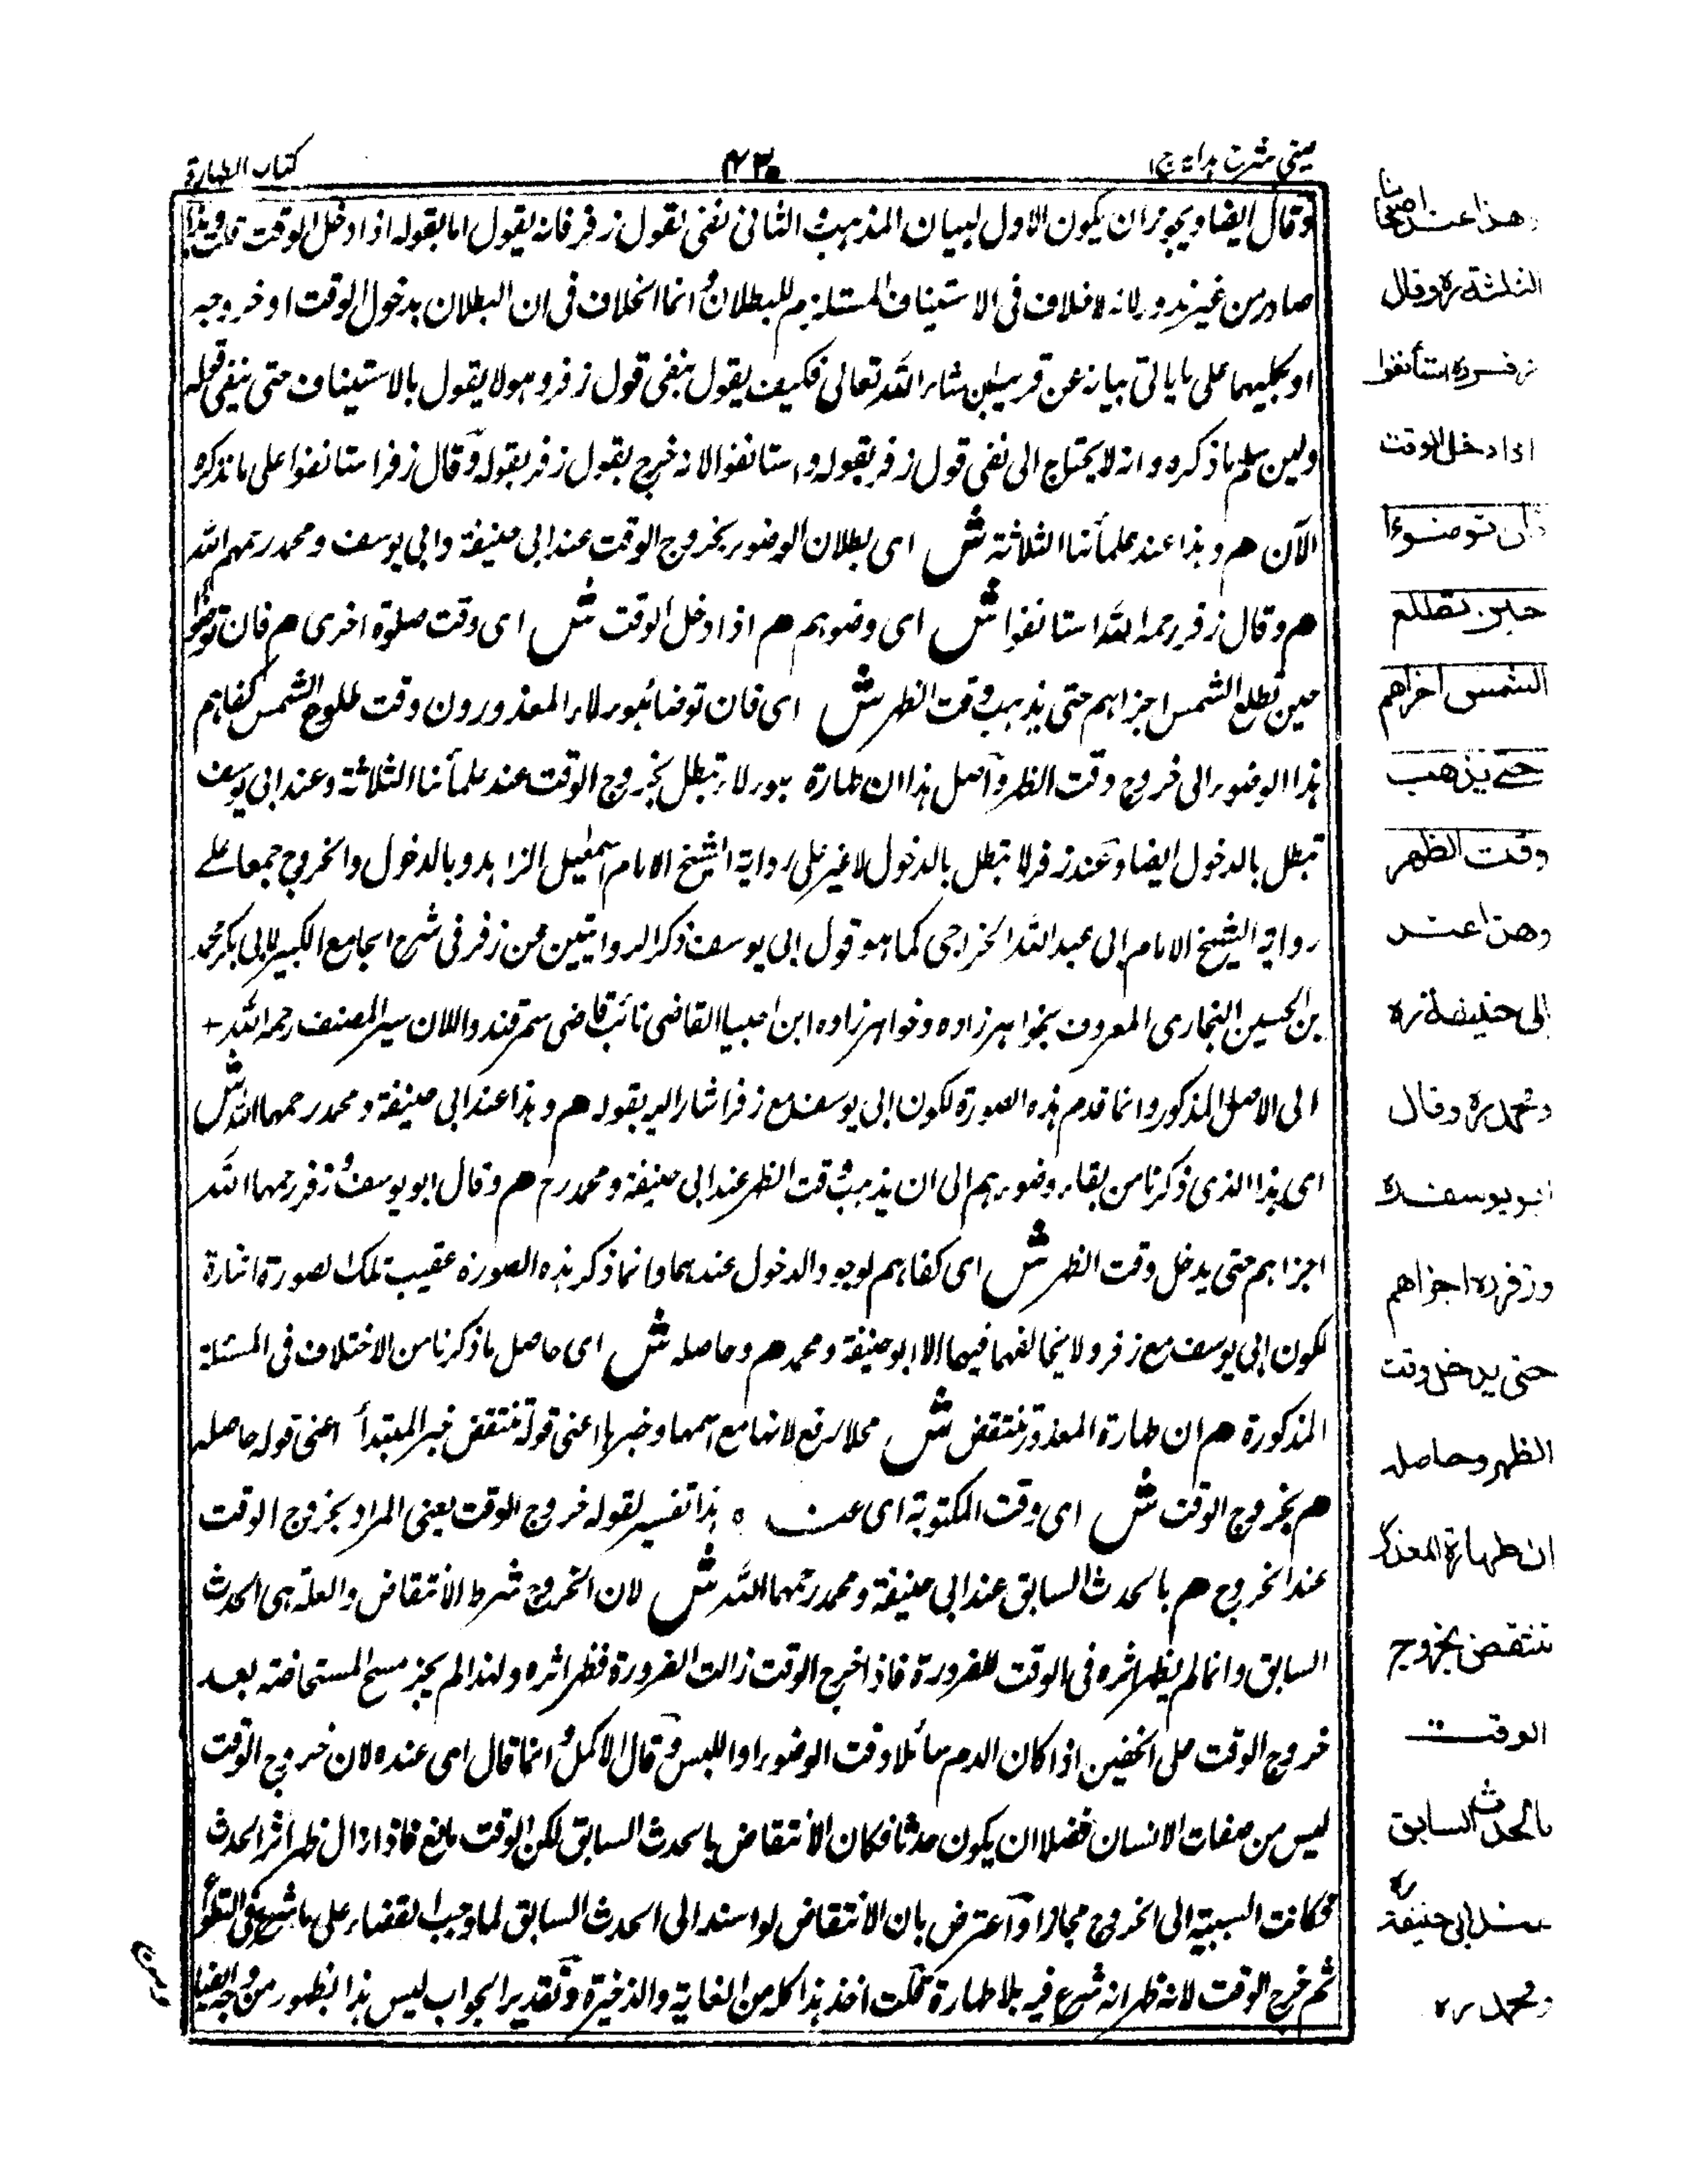 عینی شرح ہدایة ج١
٤٣٠
کتاب الطهارة
وقال ایضا ویجوز ان یکون الاول لبیان المذہب الثانی نفی لقول زفر فانه یقول اما بقوله اذا دخل الوقت قلت ہذا
صادر من غیر تدبر لانه لا خلاف فی الاستیناف المستلزم للبطلان وانما الخلاف فی ان البطلان بدخول الوقت او خروجه
او بکلیهما علی ما یاتی بیانه عن قریب ان شاء الله تعالی فکیف یقول بنفی قول زفر وہو لا یقول بالاستیناف حتی ینفی قوله
ولئن سلم ما ذکره وانه لا یحتاج الی نفی قول زفر بقوله واستانفوا لانه خرج بقول زفر بقوله وقال زفر استانفوا علی ما نذکره
الآن هم وہذا عند علمائنا الثلاثة ش ای بطلان الوضوء بخروج الوقت عند ابی حنیفة وابی یوسف ومحمد رحمهم الله
هم وقال زفر رحمه الله استانفوا ش ای وضوءہم هم اذا دخل الوقت ش ای وقت صلوة اخری هم فان توضؤا
حین تطلع الشمس اجزاہم حتی یذہب وقت الظهر ش ای فان توضأ ہولاء المعذورون وقت طلوع الشمس کفاہم
ہذا الوضوء الی خروج وقت الظهر واصل ہذا ان طهارة ہولاء تبطل بخروج الوقت عند علمائنا الثلاثة وعند ابی یوسف
تبطل بالدخول ایضا وعند زفر لا تبطل بالدخول لا غیر علی روایة الشیخ الامام اسمعیل الزاہد وبالدخول والخروج جمعا علے
روایة الشیخ الامام ابی عبد الله الخراجی کما ہو قول ابی یوسف ذکر الروایتین عن زفر فی شرح الجامع الکبیر لابی بکر محمد
بن الحسین البخاری المعروف بخواہر زاده وخواہر زاده ابن اخت القاضی ثابت قاضی سمرقند والان سیر المصنف رحمه الله +
الی الاصل المذکور وانما قدم ہذه الصورة لکون ابی یوسف مع زفر اشار الیه بقوله هم وہذا عند ابی حنیفة ومحمد رحمهما الله ش
ای ہذا الذی ذکرنا من بقاء وضوءہم الی ان یذہب وقت الظهر عند ابی حنیفة ومحمد رح هم وقال ابو یوسف وزفر رحمهما الله
اجزاہم حتی یدخل وقت الظهر ش ای کفاہم لوجود الدخول عندہما وانما ذکر ہذه الصورة عقیب تلک الصورة اشارة
لکون ابی یوسف مع زفر ولا یخالفهما فیها الا ابو حنیفة ومحمد هم وحاصله ش ای حاصل ما ذکرنا من الاختلاف فی المسئلة
المذکورة هم ان طهارة المعذور تنتقض ش محلا رفع لانها مع اسمها وخبرہا اعنی قوله تنتقض خبر المبتدأ اعنی قوله حاصله
هم بخروج الوقت ش ای وقت المکتوبة ای عنـــده ہذا تفسیر لقوله خروج الوقت یعنی المراد بخروج الوقت
عند الخروج هم بالحدث السابق عند ابی حنیفة ومحمد رحمهما الله ش لان الخروج شرط الانتقاض والعلة ہی الحدث
السابق وانما لم یظهر اثره فی الوقت للضرورة فاذا خرج الوقت زالت الضرورة فظهر اثره ولهذا لم یجز مسح المستحاضة بعد
خروج الوقت علی الخفین اذا کان الدم سائلا وقت الوضوء او اللبس وقال الاکمل وانما قال ای عنده لان خروج الوقت
لیس من صفات الانسان فضلا ان یکون حدثا فکان الانتقاض بالحدث السابق لکن الوقت مانع فاذا زال ظهر اثر الحدث
فکانت السببیة الی الخروج مجازا واعترض بان الانتقاض لو اسند الی الحدث السابق لما وجب القضاء علی ما شرع فی التطوع
ثم خرج الوقت لانه ظهر انه شرع فیه بلا طهارة قلت اخذ ہذا کله من الغایة والذخیرة وتقدیر الجواب لیس ہذا بظهور من وجه ایضا
وهذا عند اصحابنا
الثلثة ره وقال
زفر ره استأنفوا
اذا دخل الوقت
فان توضؤا
حین تطلع
الشمس اجزاهم
حتے یذهب
وقت الظهر
وهذا عند
ابی حنیفة ره
ومحمد ره وقال
ابو یوسف ره
وزفر ره اجزاهم
حتی یدخل وقت
الظهر وحاصله
ان طهارة المعذور
تنتقض بخروج
الوقت
بالحدث السابق
عند ابی حنیفة ره
ومحمد ره